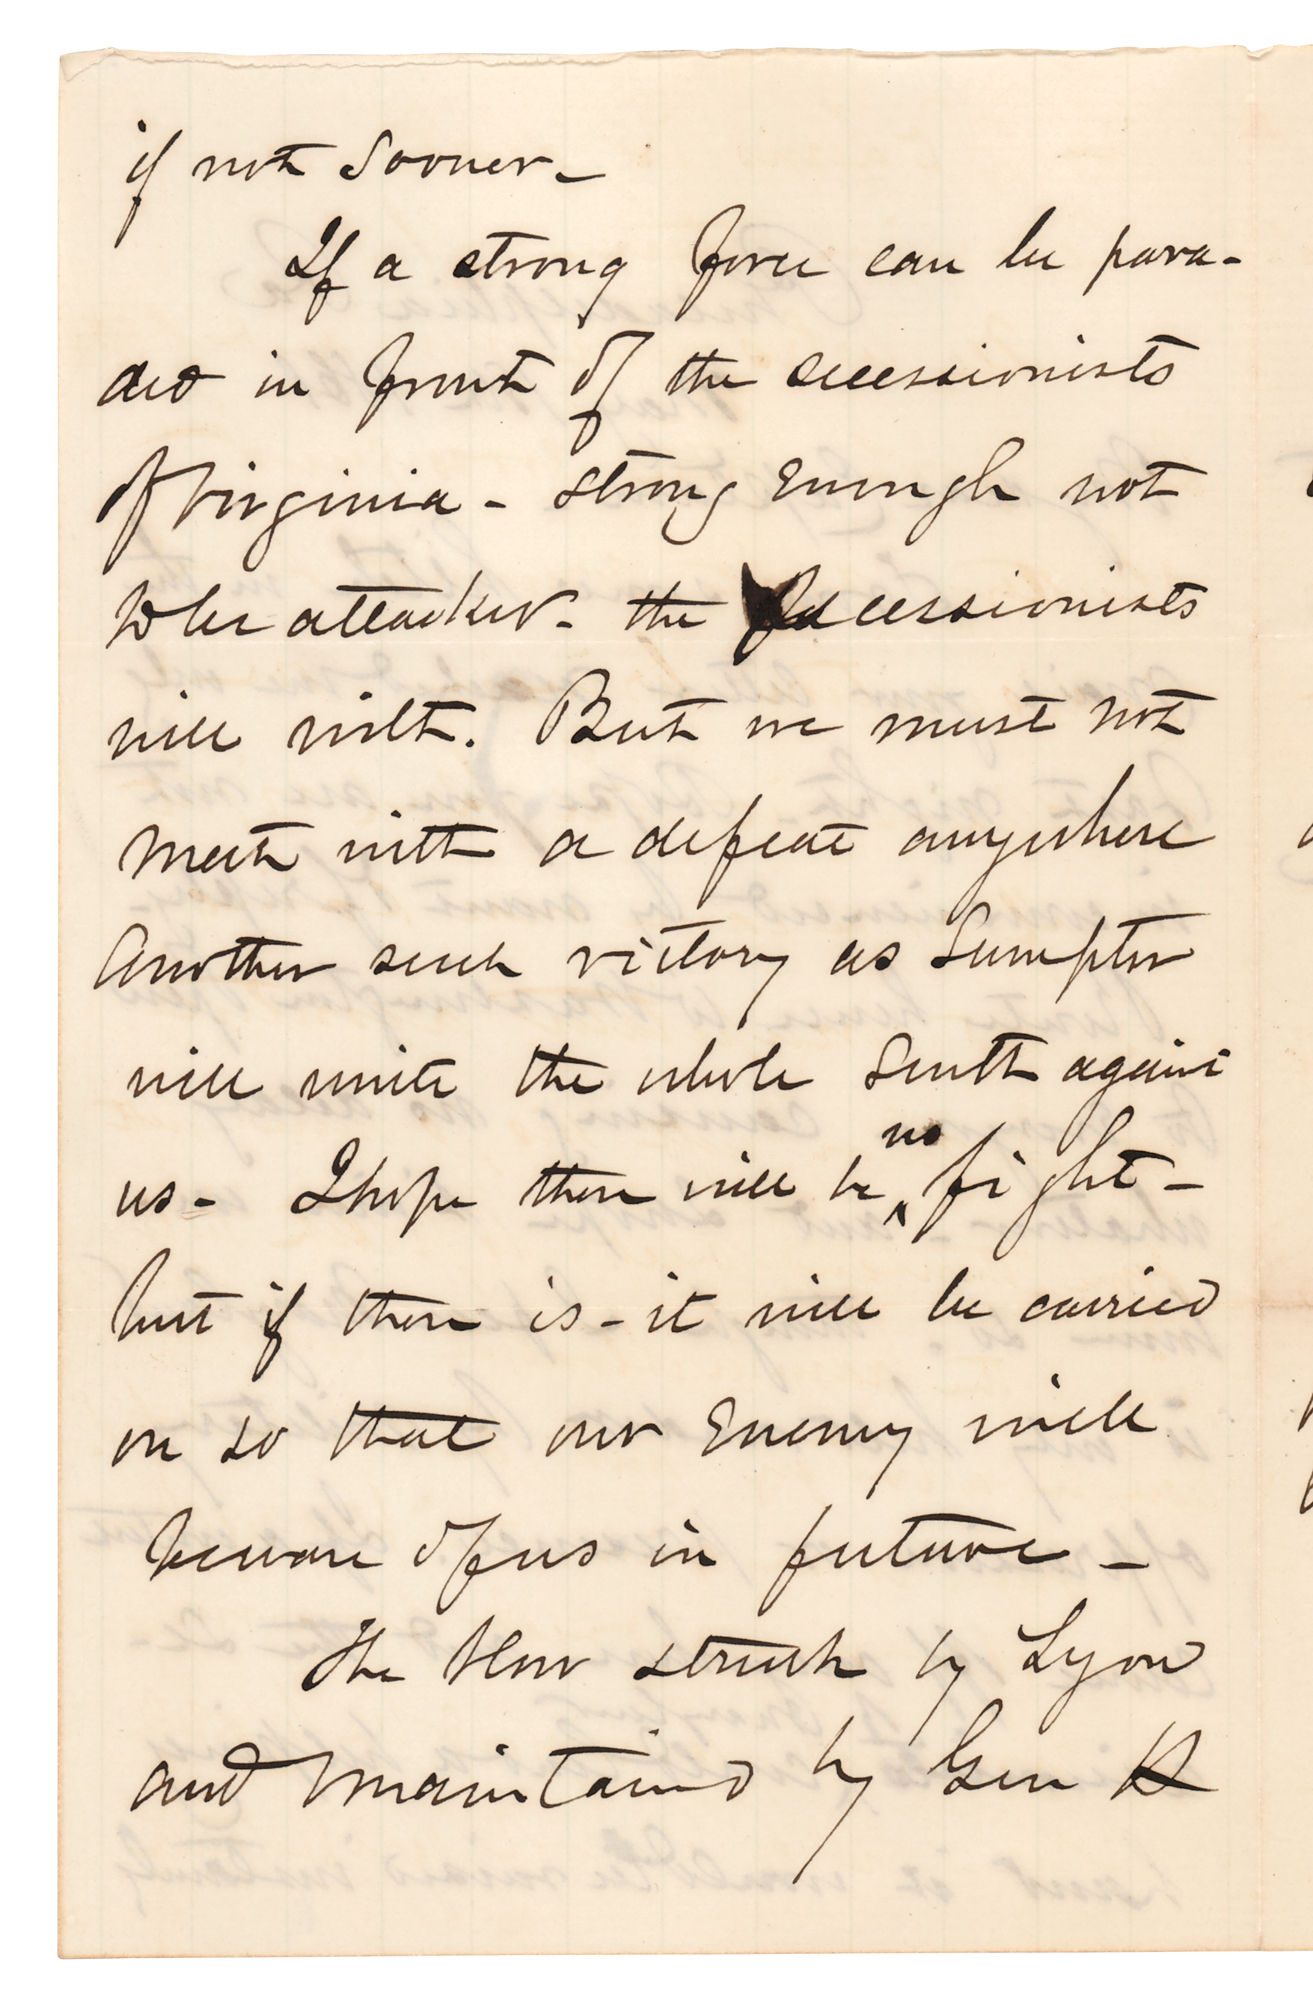 if not sooner –
If a strong force can be para-
ded in front of the secessionists
of Virginia – strong enough not
to be attacked – the secessionists
will wilt. But we must not
meet with a defeat anywhere
Another such victory as Sumpter
will unite the whole South against
us – I hope there will be no fight –
but if there is – it will be carried
on so that our Enemy will
beware of us in future –
The blow struck by Lyon
and maintained by Gen H